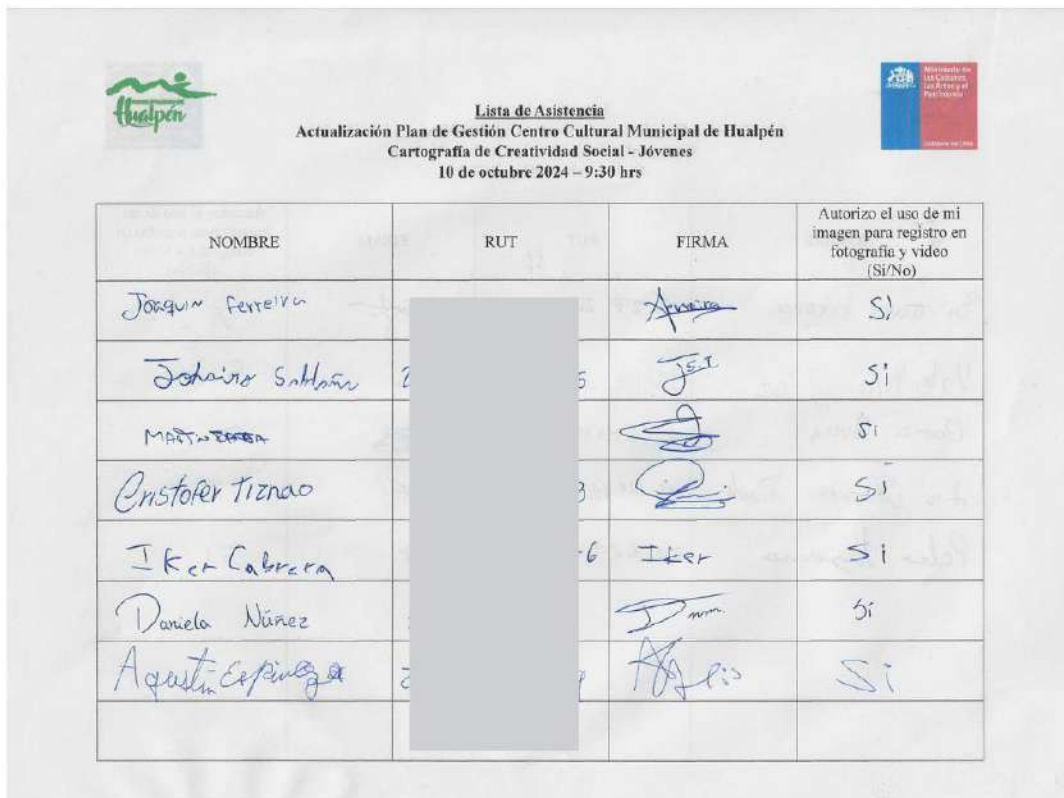 Hualpén
Ministerio de
las Culturas,
las Artes y el
Patrimonio
Gobierno de Chile
Lista de Asistencia
Actualización Plan de Gestión Centro Cultural Municipal de Hualpén
Cartografía de Creatividad Social - Jóvenes
10 de octubre 2024 – 9:30 hrs
NOMBRE RUT FIRMA Autorizo el uso de mi
imagen para registro en
fotografía y video
(Si/No)
Joaquin Ferreira Si
Si
MARTIN Si
Cristofer Tiznao Si
Iker Cabrera -6 Iker Si
Daniela Núñez Si
Agustín Espinoza Si